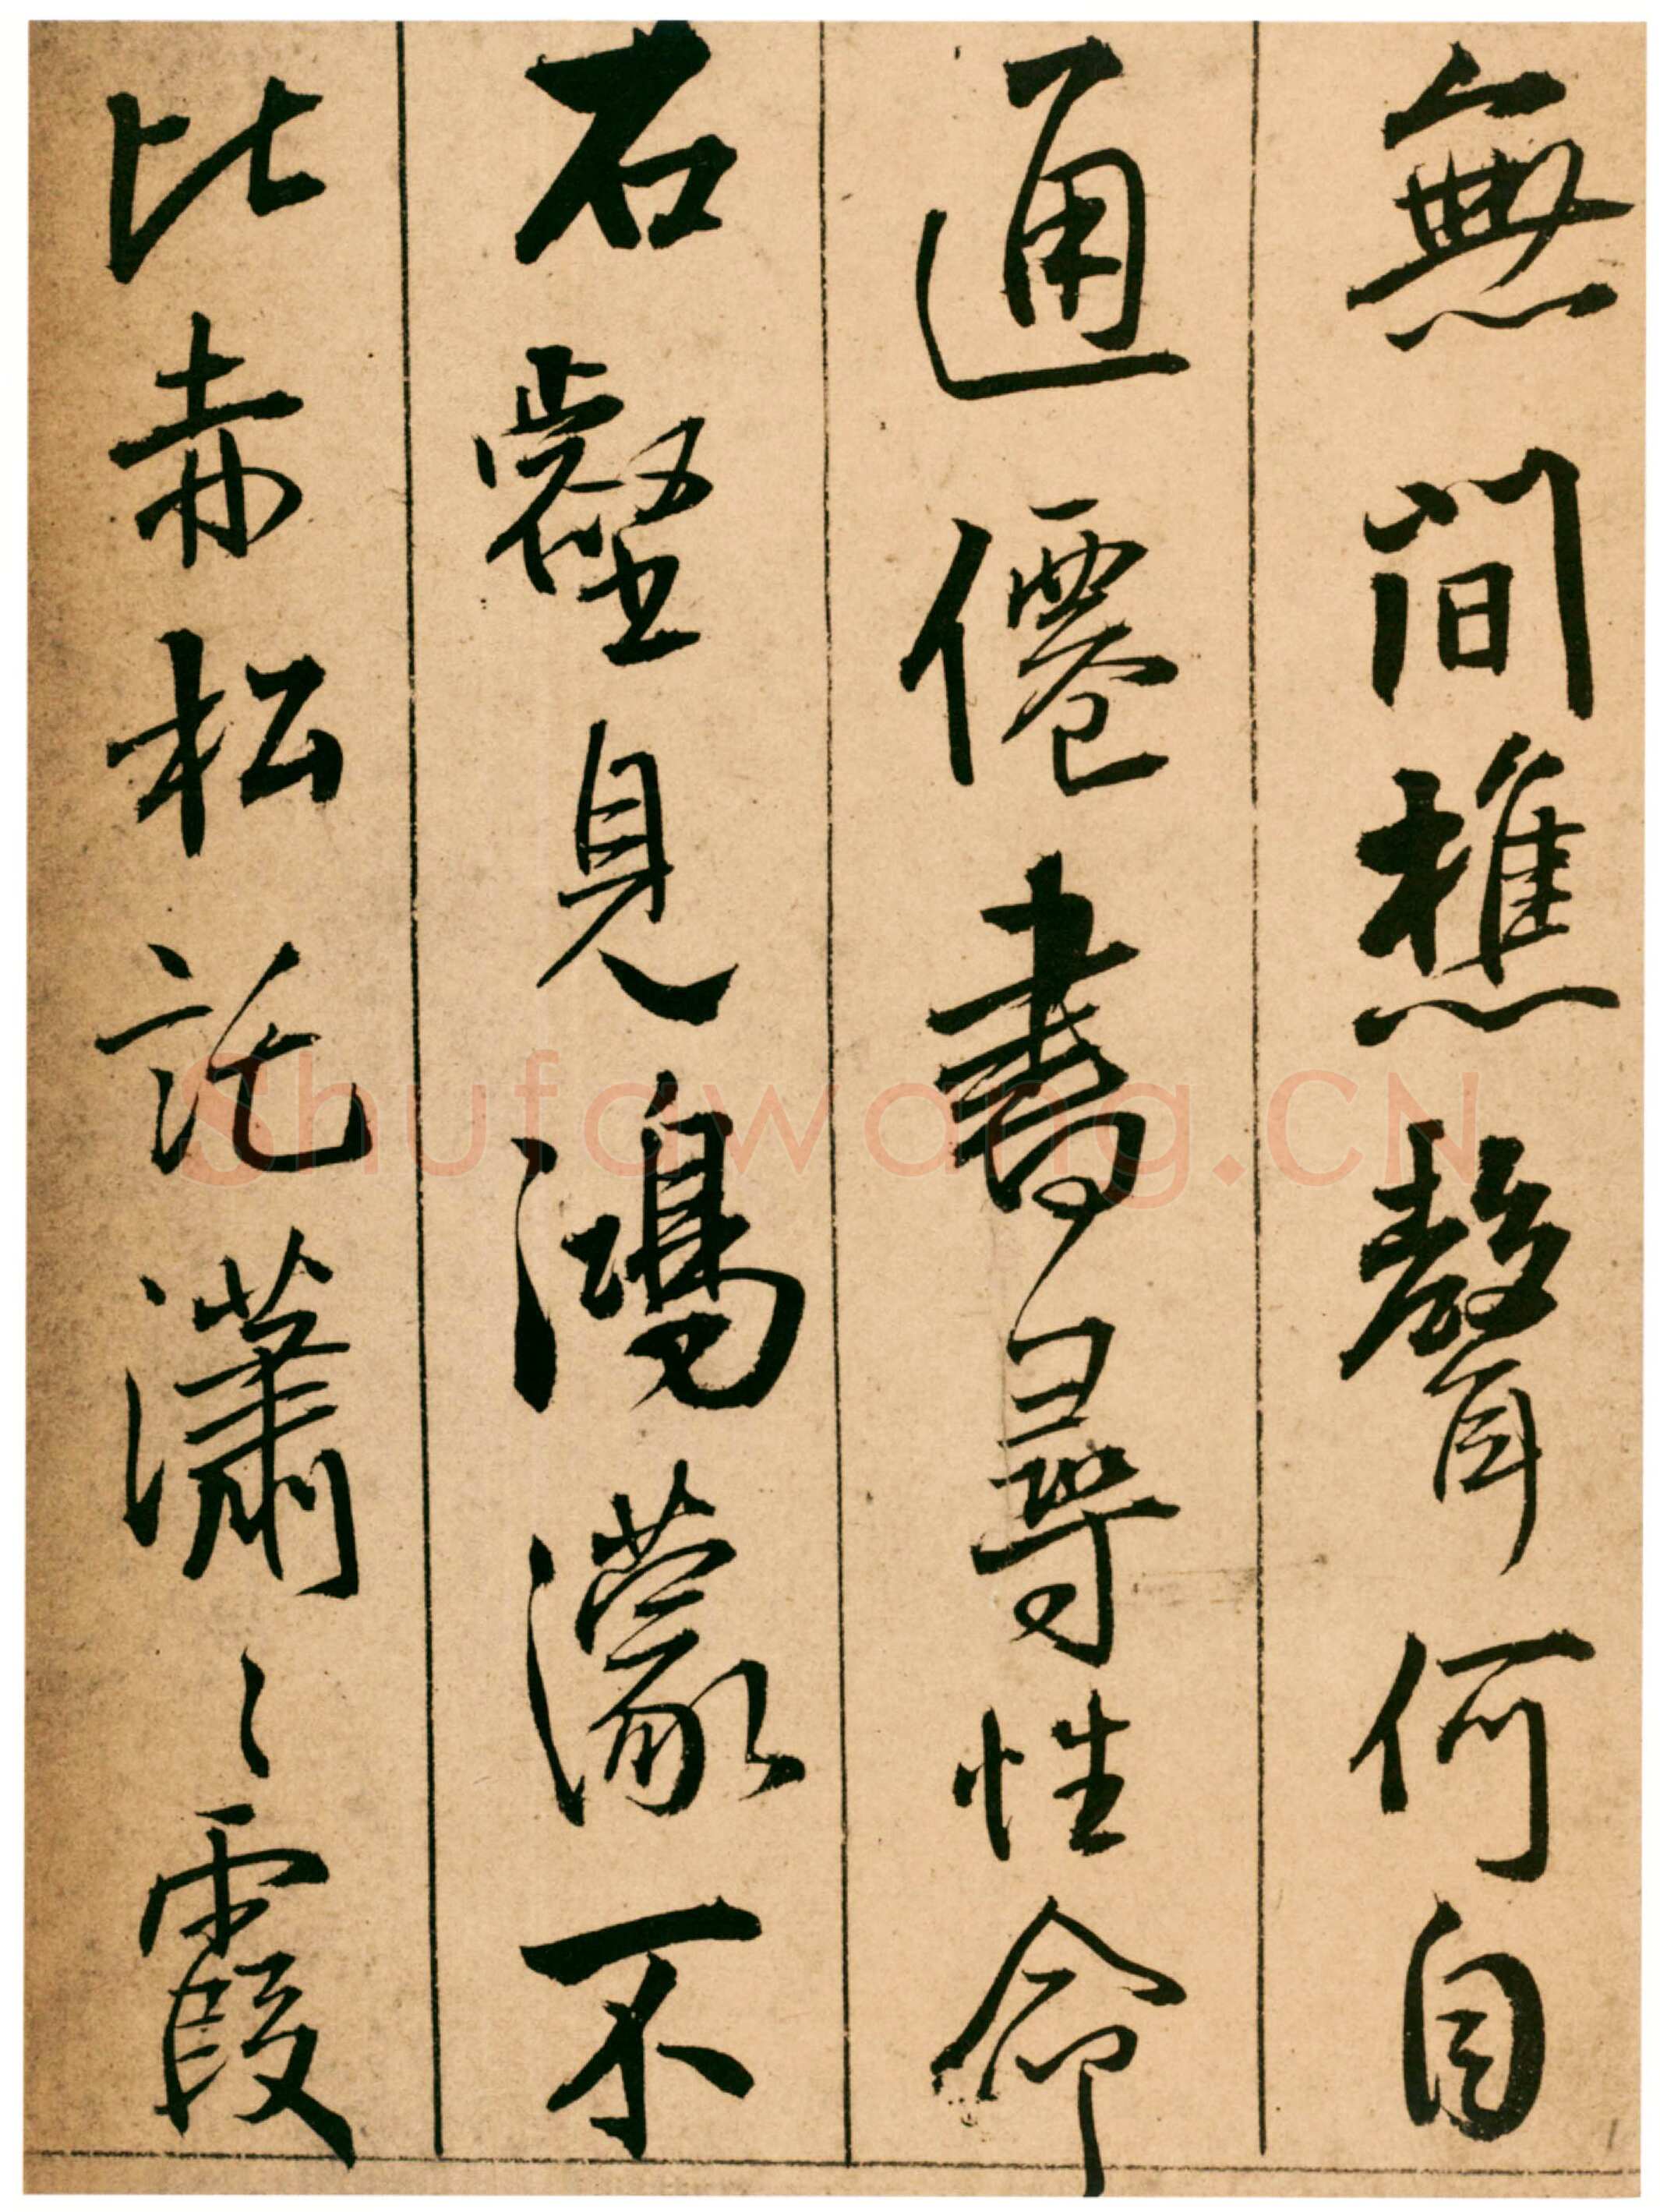 無間樵聲何自
通僊書尋性命
石壑見鴻濛不
比赤松託瀟〻霞
Shufawang.CN